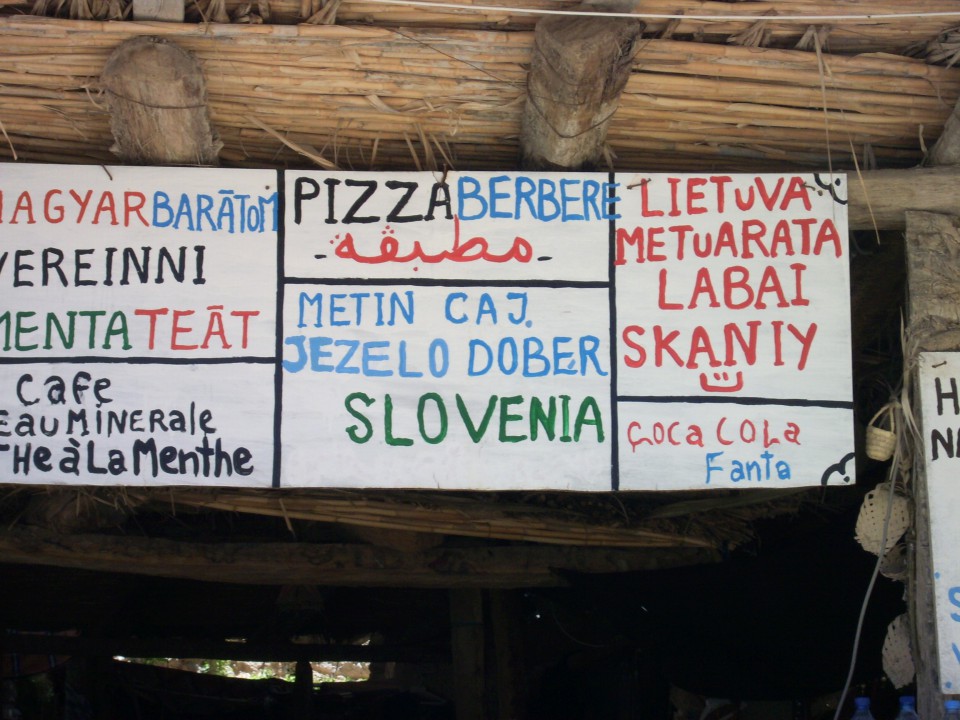 MAGYAR BARĀTOM
VEREINNI
MENTA TEĀT
Cafe
EAU MINERALE
THe à La Menthe
PIZZA BERBERE
- مطبقة -
METIN CAJ.
JEZELO DOBER
SLOVENIA
LIETuVA
METuARATA
LABAI
SKANIY
ÇocA COLA
Fanta